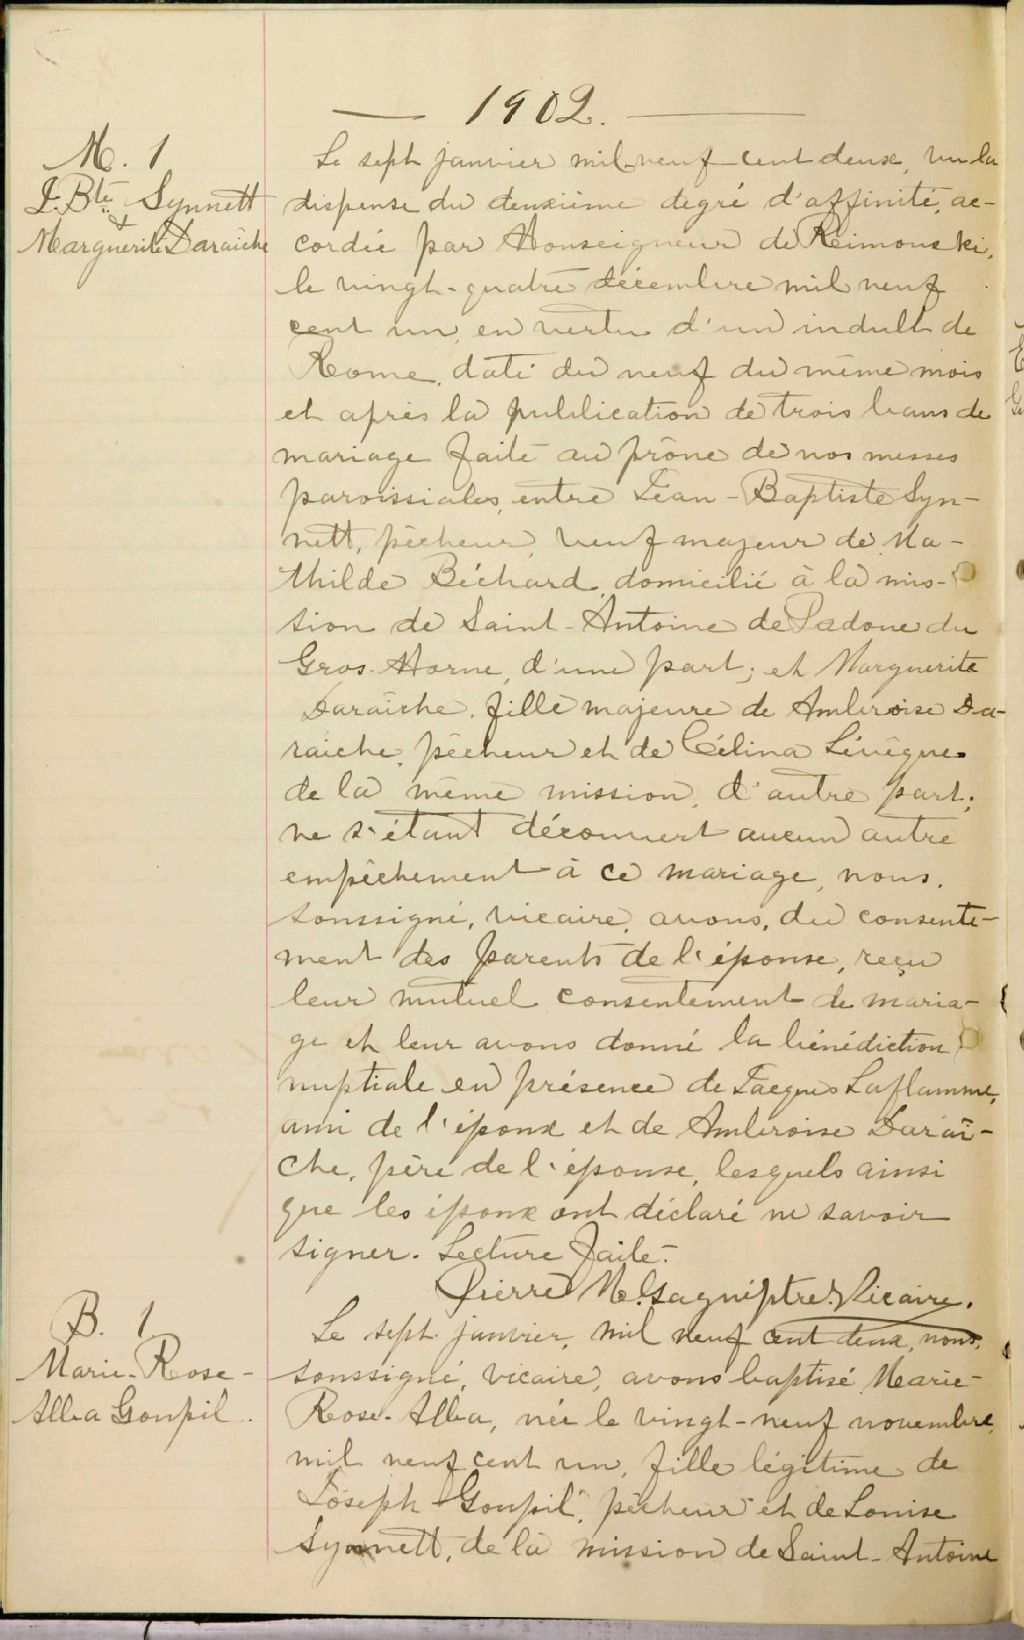 1902.
M. 1
J. Bte Synnett
&
Marguerite Daraîche
Le sept janvier mil neuf cent deux, vu la
dispense du deuxième degré d'affinité, ac-
cordée par Monseigneur de Rimouski,
le vingt-quatre décembre mil neuf
cent un, en vertu d'un indult de
Rome, daté du neuf du même mois
et après la publication de trois bans de
mariage faite au prône de nos messes
paroissiales, entre Jean-Baptiste Syn-
nett, pêcheur, veuf majeur de Ma-
thilde Béchard, domicilié à la mis-
sion de Saint-Antoine de Padoue du
Gros-Morne, d'une part; et Marguerite
Daraîche, fille majeure de Ambroise Da-
raiche, pêcheur et de Célina Lévêque
de la même mission, d'autre part;
ne s'étant découvert aucun autre
empêchement à ce mariage, nous,
soussigné, vicaire, avons, du consente-
ment des parents de l'épouse, reçu
leur mutuel consentement de maria-
ge et leur avons donné la bénédiction
nuptiale en présence de Jacques Laflamme,
ami de l'époux et de Ambroise Daraî-
che, père de l'épouse, lesquels ainsi
que les époux ont déclaré ne savoir
signer. Lecture faite.
Pierre ptre Vicaire.
B. 1
Marie-Rose-
Alba Goupil.
Le sept janvier, mil neuf cent deux, nous,
soussigné, vicaire, avons baptisé Marie-
Rose-Alba, née le vingt-neuf novembre,
mil neuf cent un, fille légitime de
Joseph Goupil, pêcheur et de Louise
Synnett, de la mission de Saint-Antoine